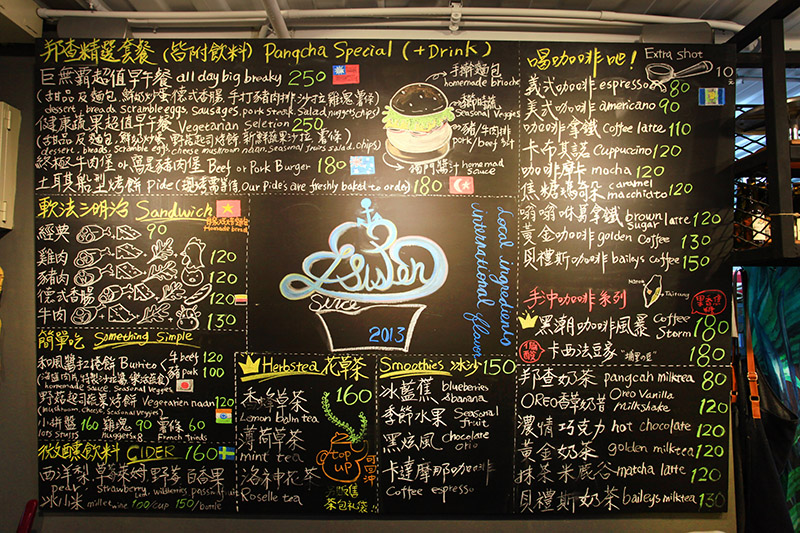 邦查精選套餐 (皆附飲料) Pangcha Special (+Drink)
巨無霸超值早午餐 all day big breaky 250
dessert, breads, scramble eggs, sausages, pork steak, salad, nuggets, chips
健康蔬果超值早午餐 Vegetarian Seletion 250
終極牛肉堡 or 豬肉堡 Beef or Pork Burger 180
土耳其船型烤餅 Pide Our Pides are freshly baked to order) 180
手工麵包
homemade brioche
Seasonal Veggies
豬/牛肉排
獨門醬汁 homemad sauce
軟法三明治 Sandwich
Homemade bread
經典 90
雞肉 120
豬肉 120
德式香腸 120
牛肉 130
簡單吃 Something Simple
Burito 牛 beef 120
豬 pork 100
homemade sauce, Seasonal Veggies
Vegetarian naan 120
(mushroom, cheese, seasonal veggies)
160 雞塊 90 薯條 60
Nuggets 8 French Fries
微醺飲料 CIDER 160
西洋梨 草莓萊姆 野莓 百香果
pear Strawberry wildberries passionfruit
millet wine 100/cup 150/bottle
Since
2013
Local ingredients
international flavour
Herbstea 花草茶
160
Lemon balm tea
薄荷草茶
mint tea
洛神花茶
Roselle tea
top up
可回沖
茶包禮袋
Smoothies 冰沙 150
冰藍蕉 blueberries & banana
季節水果 Seasonal fruit
黑炫風 chocolate orio
卡達摩耶咖啡
Coffee espresso
喝咖啡吧! Extra shot 10
義式咖啡 espresso 80
美式咖啡 americano 90
咖啡拿鐵 Coffee latte 110
卡布其諾 Cuppuccino 120
咖啡摩卡 mocha 120
焦糖瑪奇朵 caramel macchiatto 120
嗡嗡咪易拿鐵 brown Sugar latte 120
黃金咖啡 golden Coffee 130
貝禮斯咖啡 baileys Coffee 150
手沖咖啡系列
Taitung
黑潮咖啡風暴 Coffee Storm 180
卡西法豆家 180
邦查奶茶 pangcah milktea 80
OREO香草奶昔 Oreo Vanilla Milkshake 120
濃情巧克力 hot chocolate 120
黃金奶茶 golden milktea 120
抹茶米鹿谷 matcha latte 120
貝禮斯奶茶 baileys milktea 130